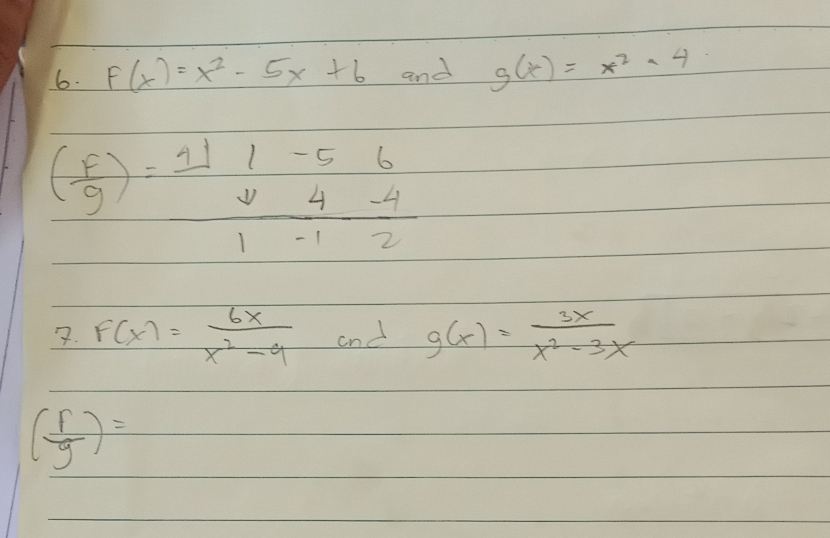 6. F(x) = x² - 5x + 6 and g(x) = x² - 4
(F/g) = 4⌋ 1 -5 6
↓ 4 -4
1 -1 2
7. F(x) = 6x/(x² - 9) and g(x) = 3x/(x² - 3x)
(F/g) =